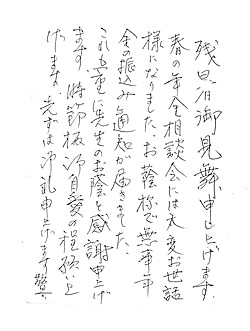 残暑御見舞申し上げます。
春の年金相談会には大変お世話
様になりました。お蔭様で無事年
金の振込み通知が届きました。
これも一重に先生のお蔭と感謝申上げ
ます。時節柄御自愛の程願い上
げます。先ずは御礼申上げます。敬具